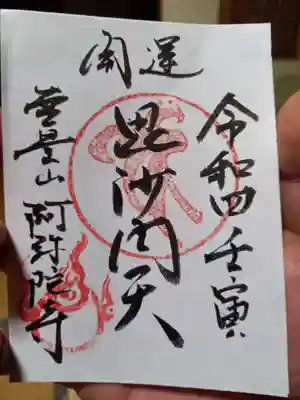 開運
令和四壬寅
毘沙門天
無量山阿弥陀寺